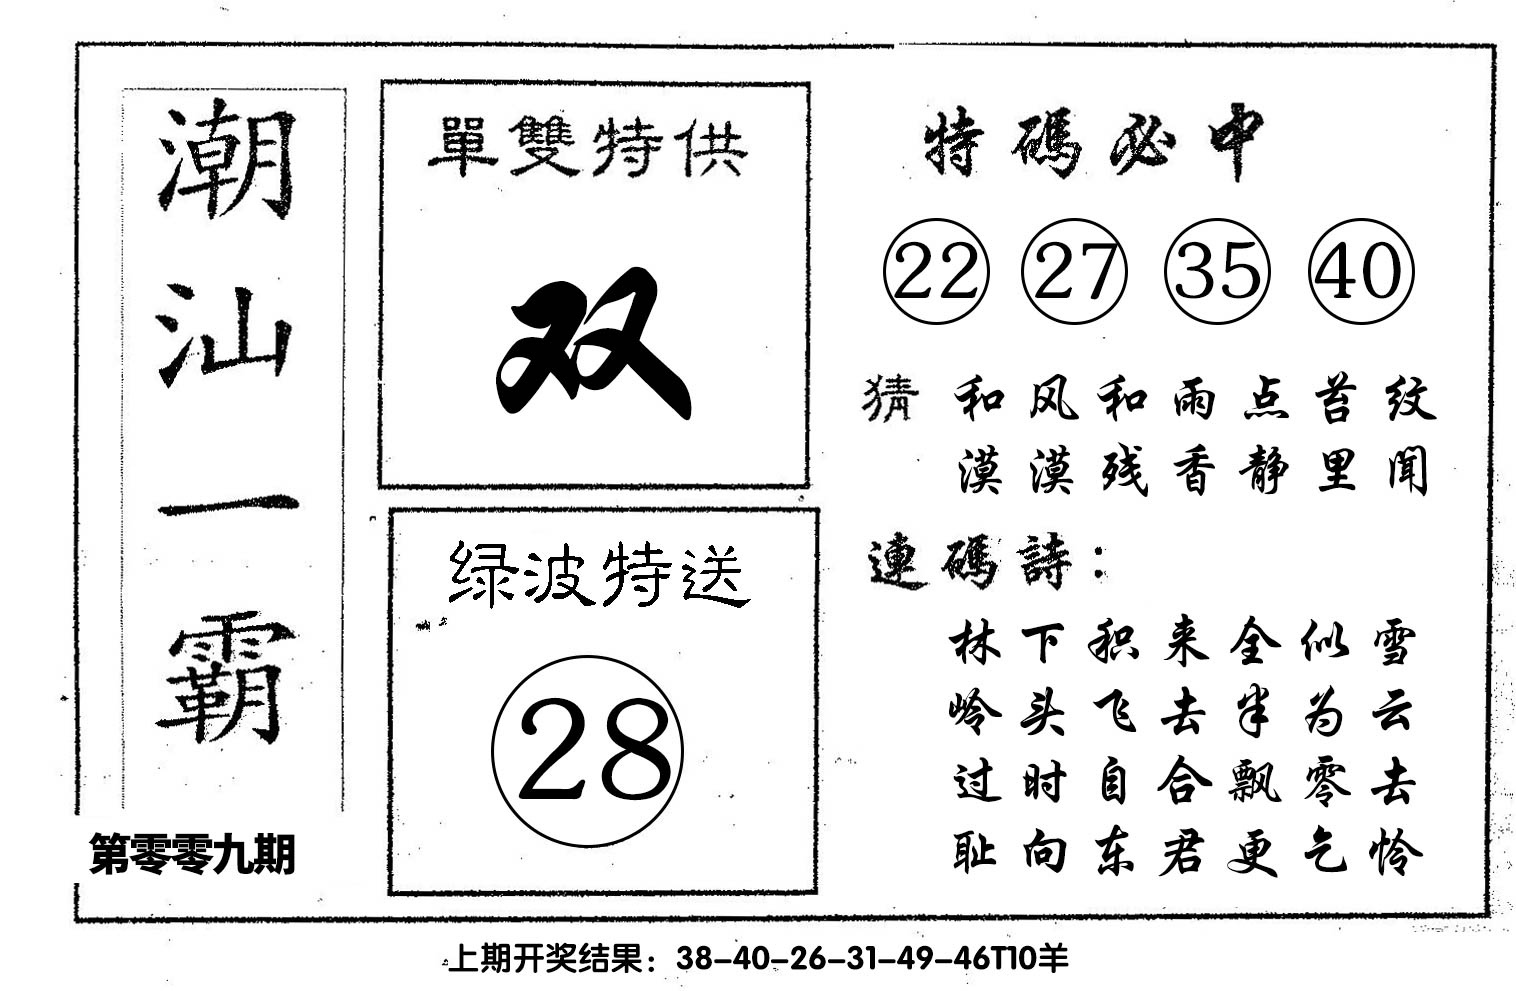 潮汕一霸
第零零九期
單雙特供
双
绿波特送
28
特碼必中
22 27 35 40
猜 和风和雨点苔纹
漠漠残香静里闻
連碼詩：
林下积来全似雪
岭头飞去半为云
过时自合飘零去
耻向东君更乞怜
上期开奖结果：38-40-26-31-49-46T10羊